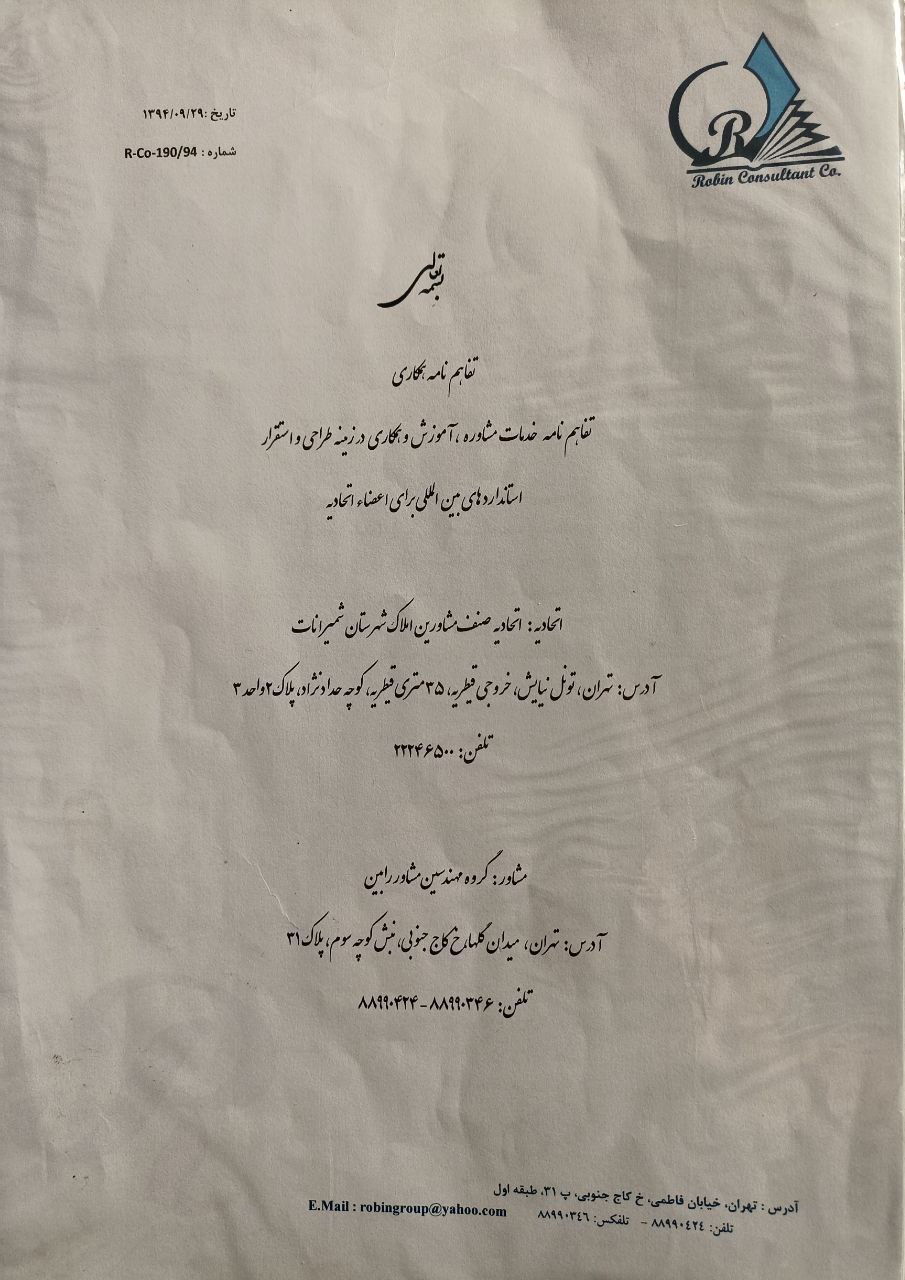 تاریخ :۱۳۹۴/۰۹/۲۹
شماره : R-Co-190/94
R
Robin Consultant Co.
بسمه تعالی
تفاهم نامه همکاری
تفاهم نامه خدمات مشاوره ، آموزش و همکاری در زمینه طراحی و استقرار
استانداردهای بین المللی برای اعضاء اتحادیه
اتحادیه: اتحادیه صنف مشاورین املاک شهرستان شمیرانات
آدرس: تهران، تونل نیایش، خروجی قیطریه، ۳۵متری قیطریه، کوچه حدادنژاد، پلاک۲واحد ۳
تلفن: ۲۲۲۴۶۵۰۰
مشاور: گروه مهندسین مشاور رابین
آدرس: تهران، میدان گلها،خ کاج جنوبی، نبش کوچه سوم، پلاک۳۱
تلفن: ۸۸۹۹۰۳۴۶-۸۸۹۹۰۴۲۴
آدرس : تهران، خیابان فاطمی، خ کاج جنوبی، پ ۳۱، طبقه اول
تلفن: ۸۸۹۹۰٤۲٤ - تلفکس: ۸۸۹۹۰۳٤٦ E.Mail : robingroup@yahoo.com